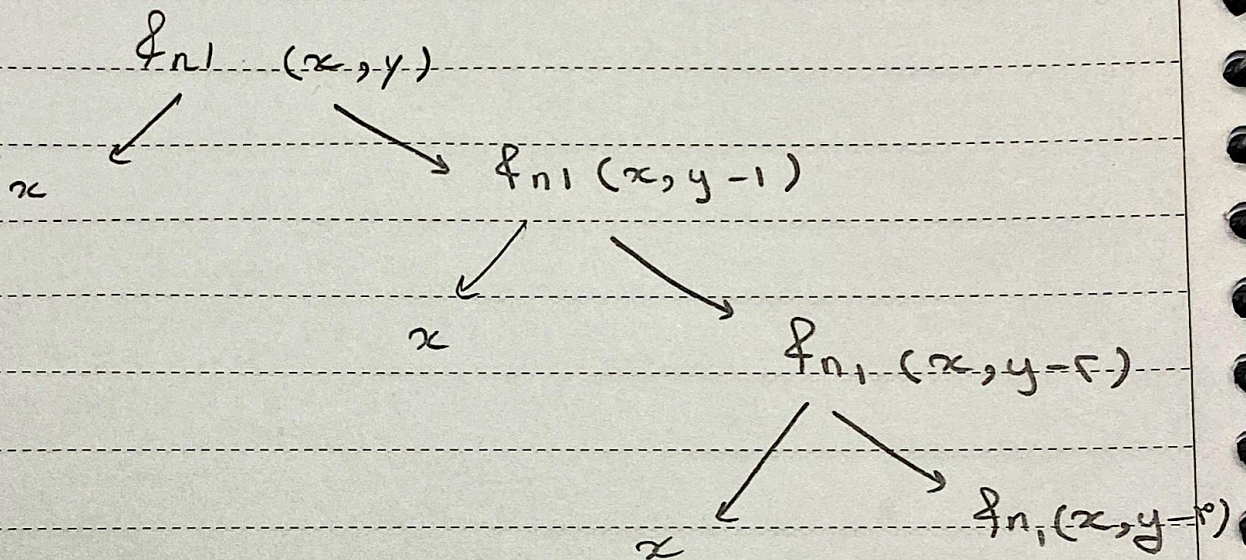 fn1 (x,y)
x
fn1 (x,y-1)
x
fn1 (x,y-۲)
x
fn1 (x,y-۳)